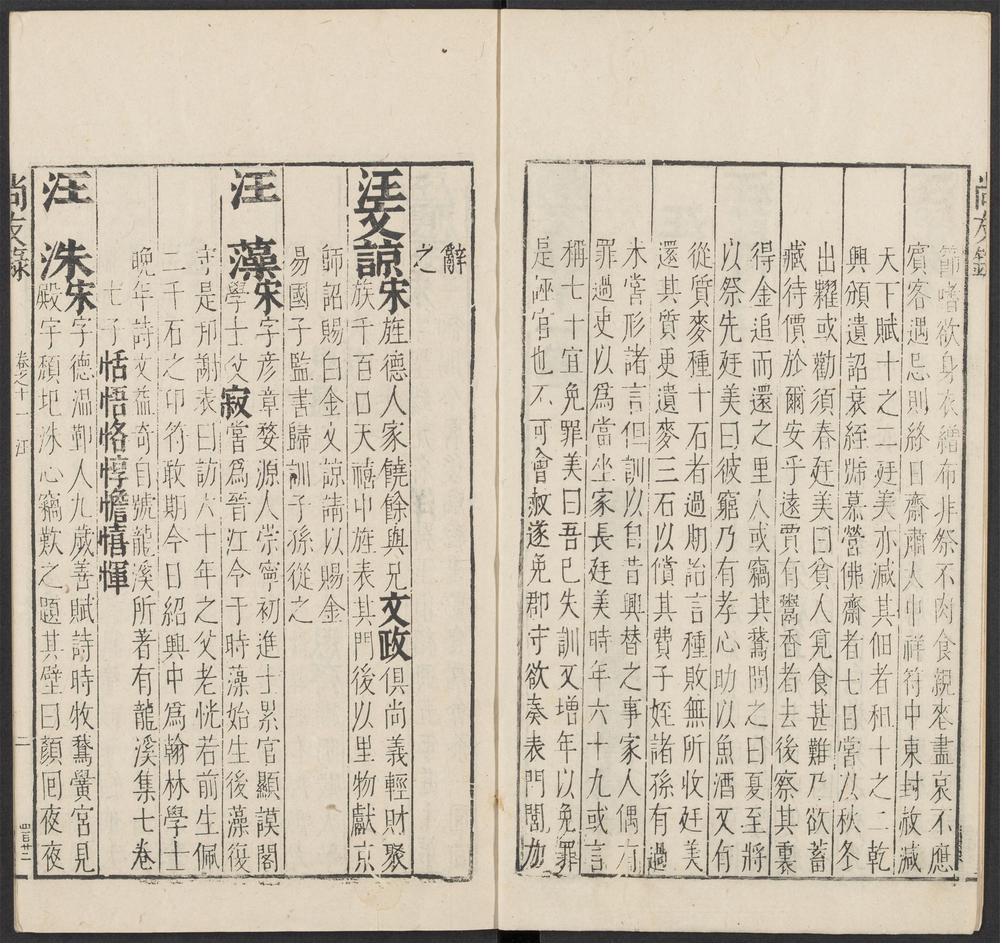 節嗜欲身衣繒布非祭不肉食親喪盡哀不應
賓客遇忌則終日齋肅大中祥符中東封赦減
天下賦十之二廷美亦減其佃者租十之二乾
興頒遺詔衰絰號慕營佛齋者七日嘗以秋冬
出糶或勸須春廷美曰貧人覓食甚難乃欲蓄
藏待價於爾安乎遠賈有鬻香者去後察其囊
得金追而還之里人或竊其鶩問之曰夏至將
以祭先廷美曰彼窮乃有孝心助以魚酒又有
從質麥種十石者過期詒言種敗無所收廷美
還其質更遺麥三石以償其費子姪諸孫有過
未嘗形諸言但訓以自昔興替之事家人偶有
罪過吏以爲當坐家長廷美時年六十九或言
稱七十宜免罪美曰吾已失訓又增年以免罪
是誣官也不可會赦遂免郡守欲奏表門閭力
辭之
汪文諒宋旌德人家饒餘與兄文政俱尚義輕財聚
族千百口天禧中旌表其門後以里物獻京
師詔賜白金文諒請以賜金
易國子監書歸訓子孫從之
汪藻宋字彥章婺源人崇寧初進士累官顯謨閣
學士父㝛嘗爲晉江令于時藻始生後藻復
守是邦謝表曰訪六十年之父老恍若前生佩
二千石之印符敢期今日紹興中爲翰林學士
晚年詩文益奇自號龍溪所著有龍溪集七卷
七子恬悟恪惇憺憘㥣
汪洙宋字德溫鄞人九歲善賦詩時牧鵞黌宮見
殿宇頹圯洙心竊歎之題其壁曰顏回夜夜
尚友錄
卷之十一
汪
二
四百廿三
尚友錄